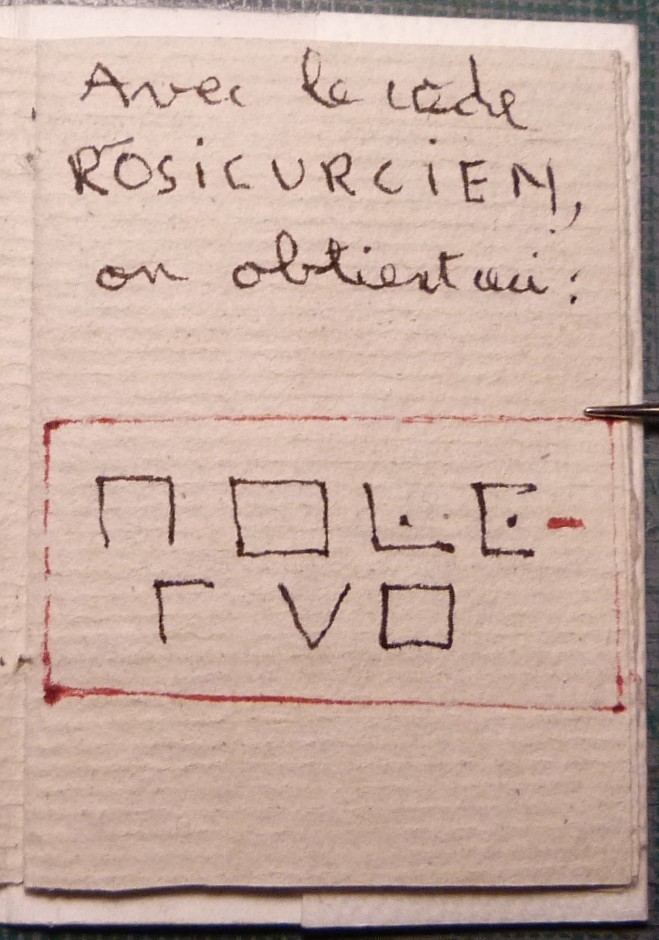 Avec le code
ROSICURCIEN,
on obtient ceci :